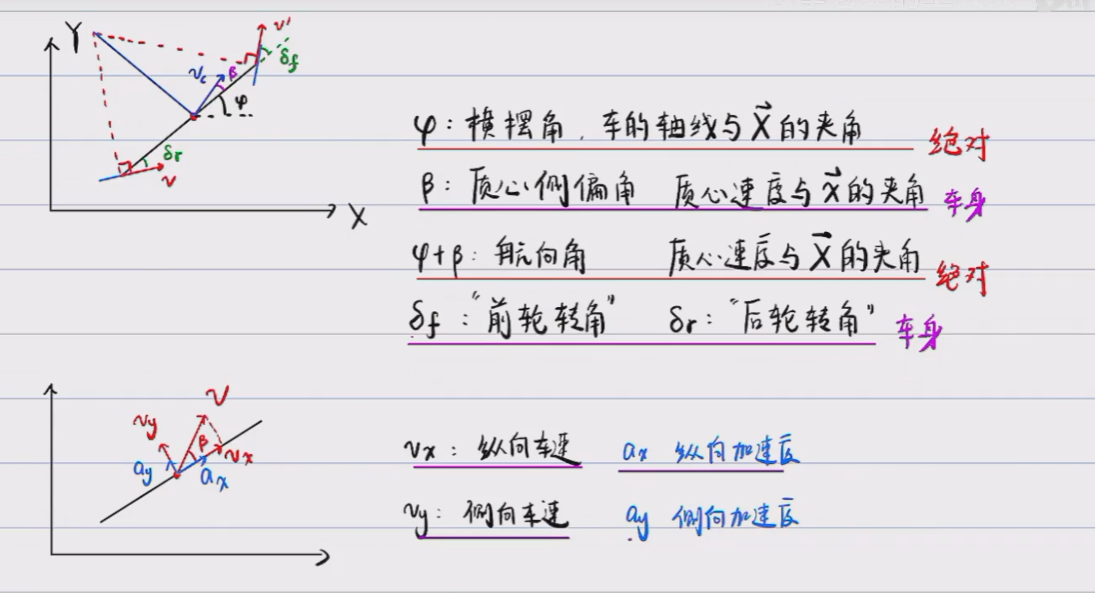 Y
v'
δf
vc
β
φ
δr
v
X
φ：横摆角，车的轴线与X的夹角 绝对
β：质心侧偏角 质心速度与x的夹角 车身
φ+β：航向角 质心速度与X的夹角 绝对
δf："前轮转角" δr："后轮转角" 车身
v
vy
β
vx
ay
ax
vx：纵向车速 ax 纵向加速度
vy：侧向车速 ay 侧向加速度